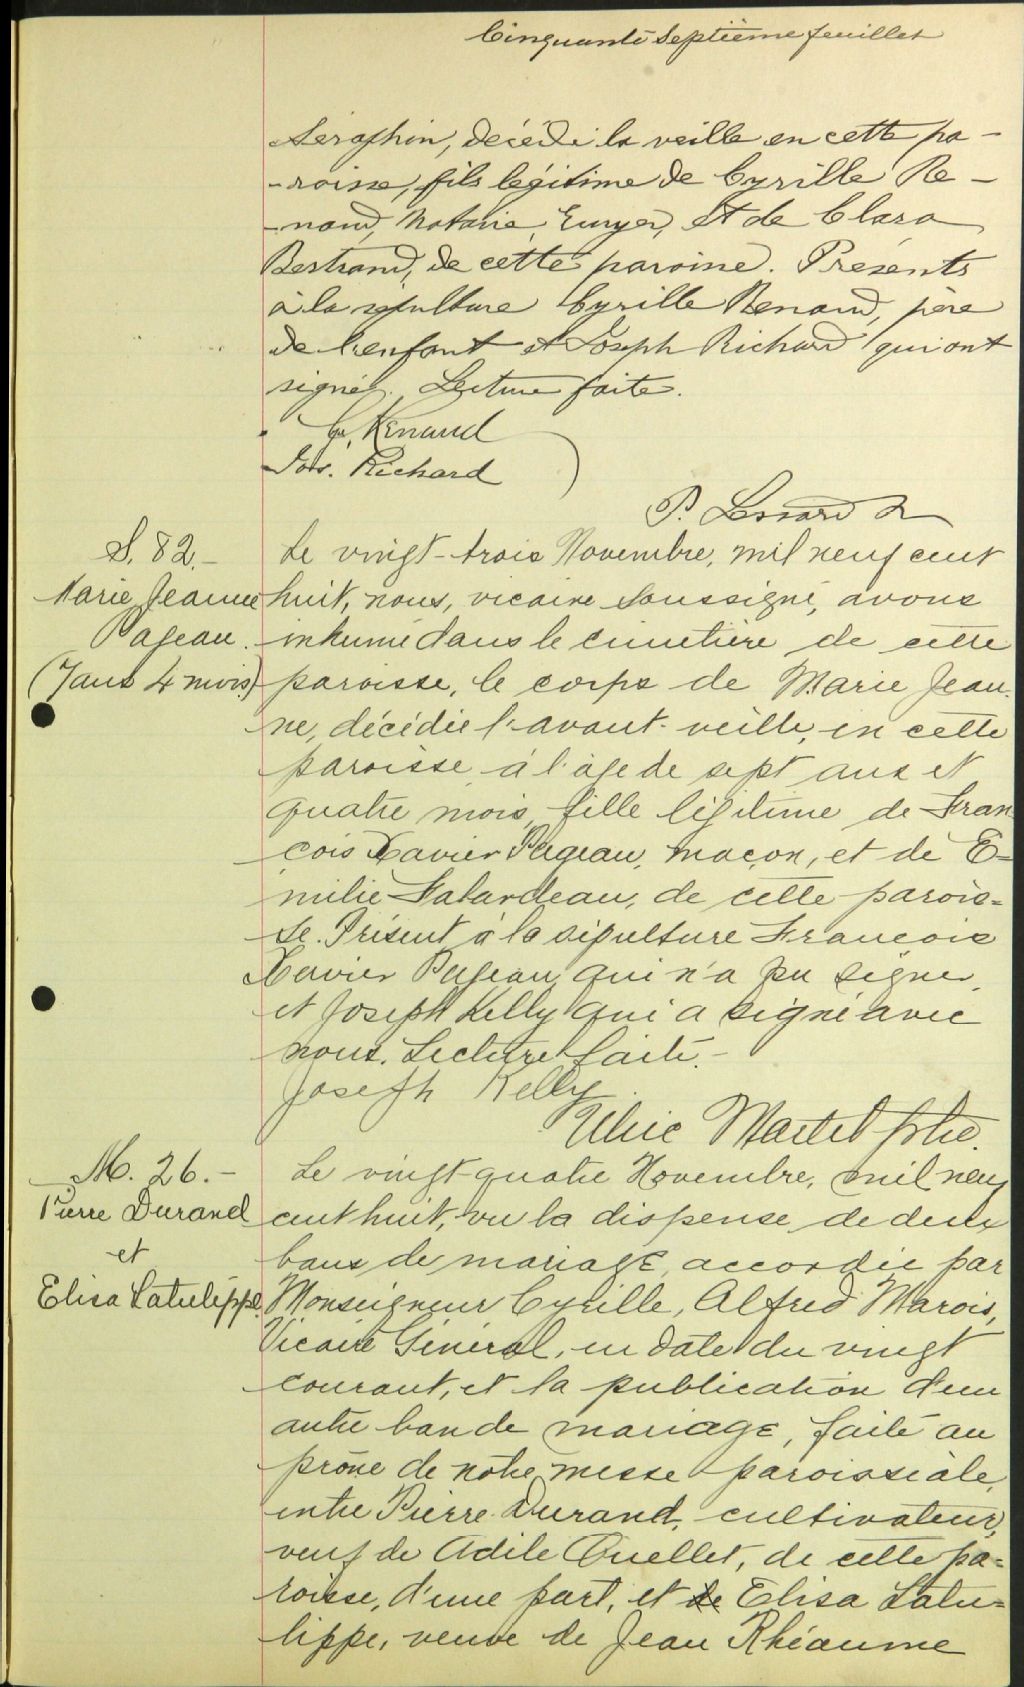 Cinquante Septième feuillet
Séraphin, décédé la veille en cette pa-
-roisse, fils légitime de Cyrille Re-
-naud, Notaire, Ecuyer, et de Clara
Bertrand, de cette paroisse. Présents
à la sépulture Cyrille Renaud, père
de l'enfant et Joseph Richard qui ont
signé. Lecture faite.
Renaud
Jos. Richard
P. Lessard
S. 82.-
Marie Jeanne
Pageau.
(7 ans 4 mois)
Le vingt-trois Novembre, mil neuf cent
huit, nous, vicaire soussigné, avons
inhumé dans le cimetière de cette
paroisse, le corps de Marie Jean-
ne, décédée l'avant-veille, en cette
paroisse à l'âge de sept ans et
quatre mois, fille légitime de Fran-
çois Xavier Pageau, maçon, et de E=
milie Falardeau, de cette parois=
se. Présent à la sépulture François
Xavier Pageau qui n'a pu signer,
et Joseph Kelly qui a signé avec
nous. Lecture faite.-
Joseph Kelly
Ulric Martel ptre.
M. 26.-
Pierre Durand
et
Elisa Latulippe.
Le vingt-quatre Novembre, mil neuf
cent huit, vu la dispense de deux
bans de mariage accordée par
Monseigneur Cyrille, Alfred Marois,
Vicaire Général, en date du vingt
courant, et la publication d'un
autre ban de mariage, faite au
prône de nôtre messe paroissiale,
entre Pierre Durand, cultivateur,
veuf de Adile Ouellet, de cette pa=
roisse, d'une part, et de Elisa Latu=
lippe, veuve de Jean Rhéaume